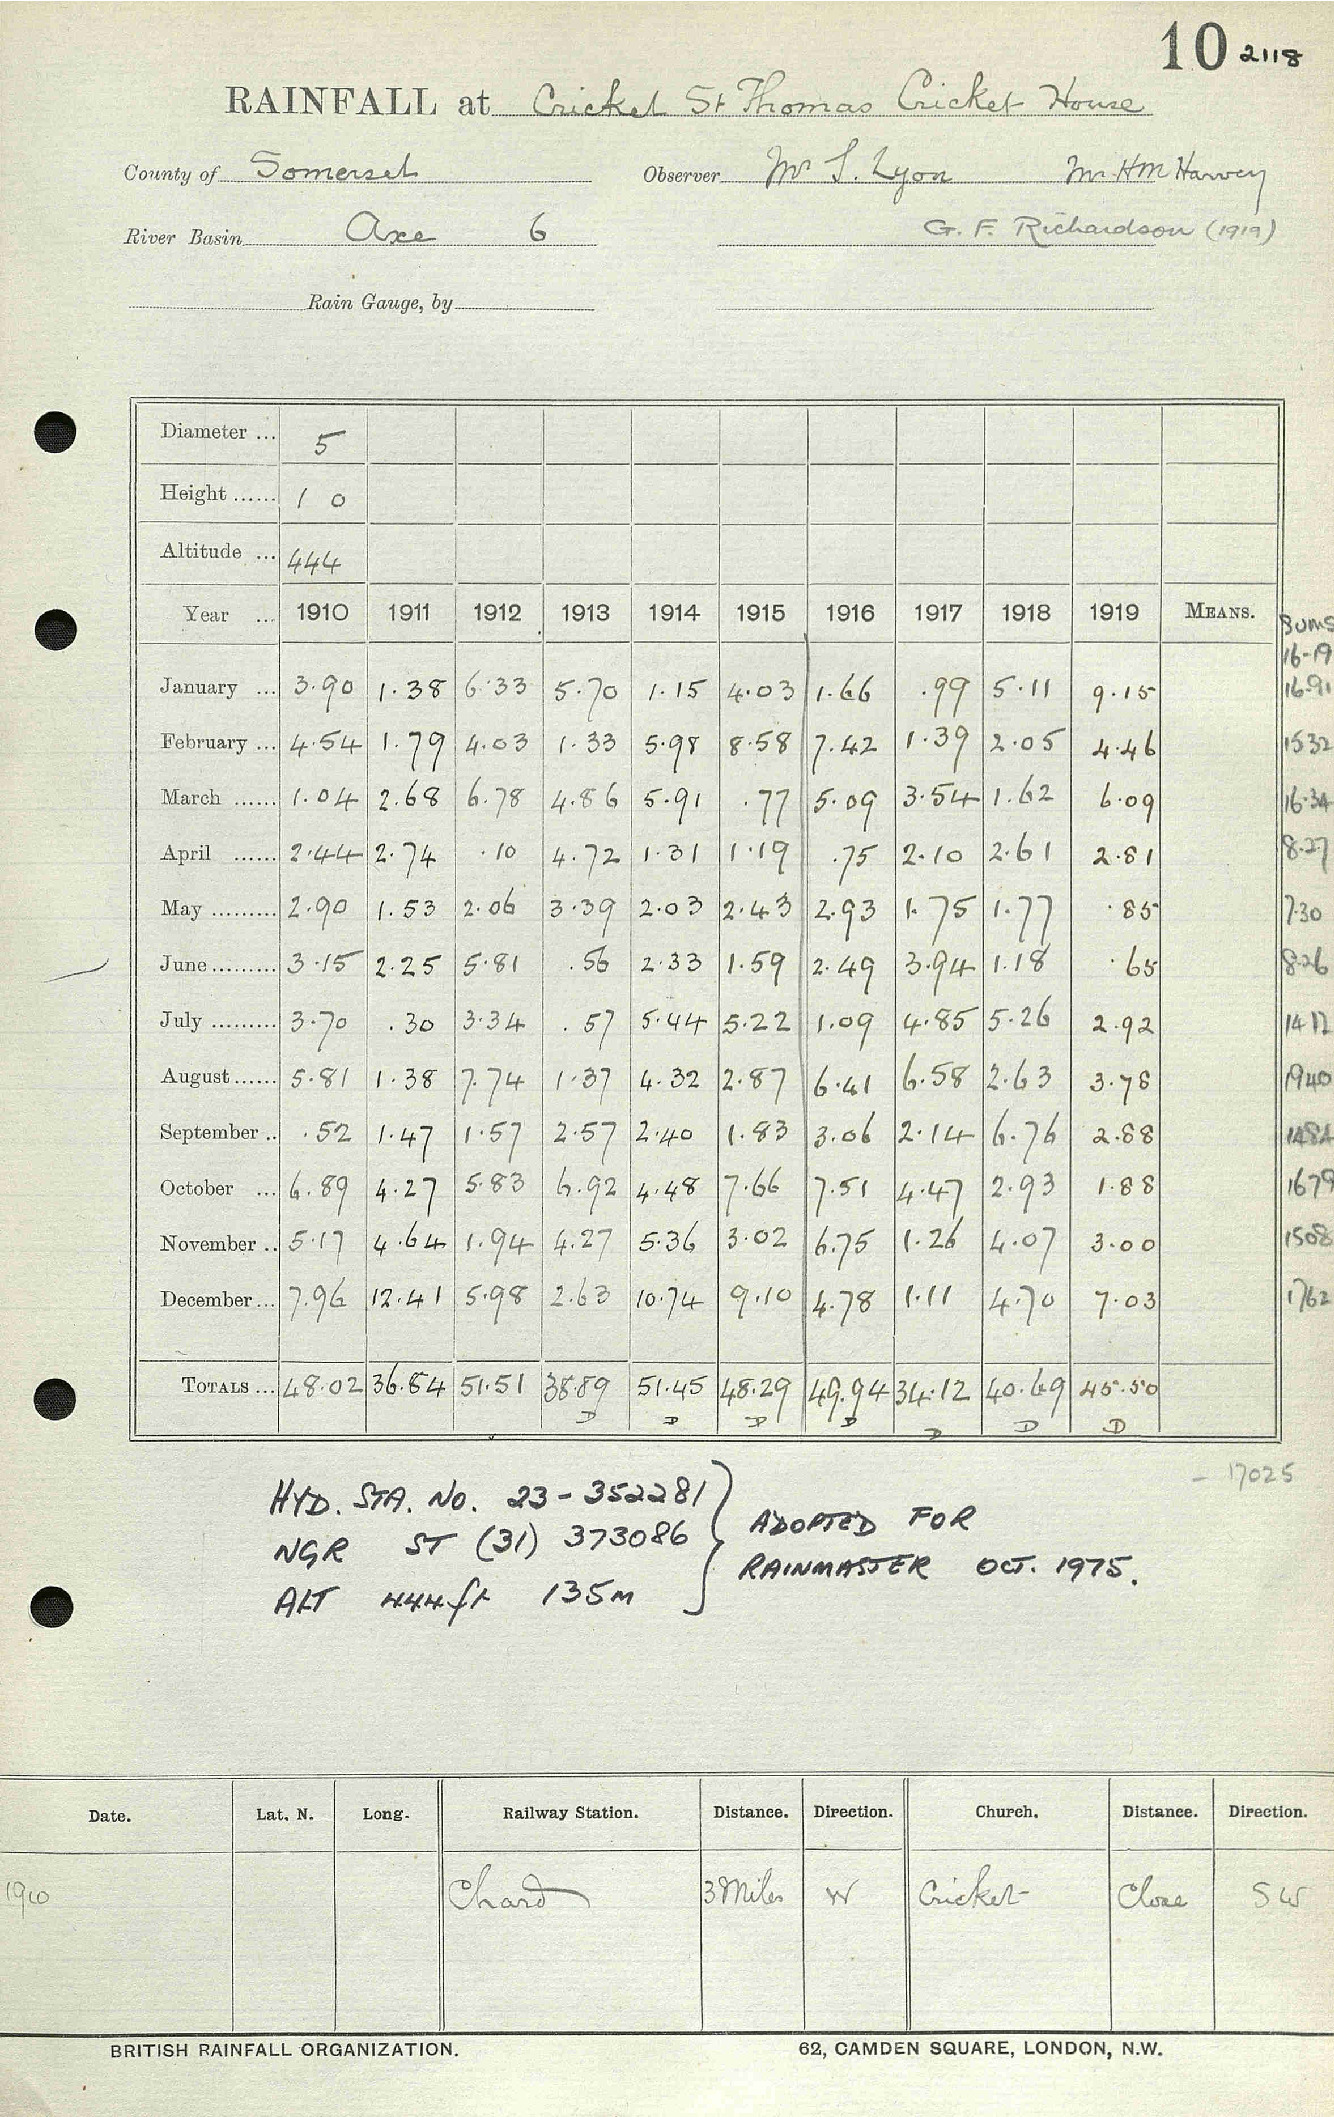 10 2118
RAINFALL at Cricket St Thomas Cricket House
County of Somerset Observer Mr S. Lyon Mr HM Harvey
River Basin Axe 6 G. F. Richardson (1919)
Rain Gauge, by
Diameter ... 5
Height ...... 1 0
Altitude ... 444
Year ... 1910 1911 1912 1913 1914 1915 1916 1917 1918 1919 MEANS. Sums
16-19
January ... 3.90 1.38 6.33 5.70 1.15 4.03 1.66 .99 5.11 9.15 16.91
February ... 4.54 1.79 4.03 1.33 5.98 8.58 7.42 1.39 2.05 4.46 1532
March ...... 1.04 2.68 6.78 4.86 5.91 .77 5.09 3.54 1.62 6.09 16.34
April ...... 2.44 2.74 .10 4.72 1.31 1.19 .75 2.10 2.61 2.81 8.27
May ......... 2.90 1.53 2.06 3.39 2.03 2.43 2.93 1.75 1.77 .85 7.30
June ......... 3.15 2.25 5.81 .56 2.33 1.59 2.49 3.94 1.18 .65 8.26
July ......... 3.70 .30 3.34 .57 5.44 5.22 1.09 4.85 5.26 2.92 14.12
August ...... 5.81 1.38 7.74 1.37 4.32 2.87 6.41 6.58 2.63 3.78 1940
September .. .52 1.47 1.57 2.57 2.40 1.83 3.06 2.14 6.76 2.88 1484
October ... 6.89 4.27 5.83 6.92 4.48 7.66 7.51 4.47 2.93 1.88 1679
November .. 5.17 4.64 1.94 4.27 5.36 3.02 6.75 1.26 4.07 3.00 1508
December ... 7.96 12.41 5.98 2.63 10.74 9.10 4.78 1.11 4.70 7.03 1762
TOTALS ... 48.02 36.84 51.51 38.89 51.45 48.29 49.94 34.12 40.69 45.50
D D D D D D D
- 17025
HYD. STA. No. 23-352281
NGR ST (31) 373086
ALT 444ft 135m
ADOPTED FOR
RAINMASTER OCT. 1975.
Date. Lat. N. Long. Railway Station. Distance. Direction. Church. Distance. Direction.
1910 Chard 3 Miles W Cricket Close SW
BRITISH RAINFALL ORGANIZATION. 62, CAMDEN SQUARE, LONDON, N.W.